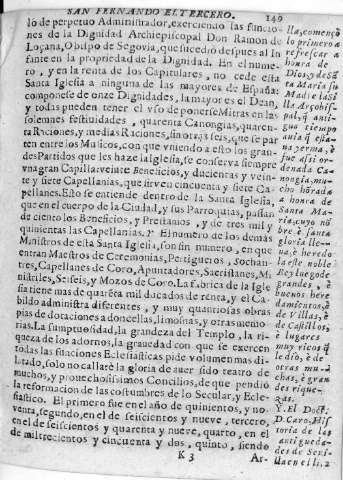 SAN FERNANDO EL TERCERO. 149
lo de perpetuo Administrador, exerciendo las funcio-
nes de la Dignidad Archiepiscopal Don Ramon de
Loçana, Obispo de Segovia, que sucediò despues al In
fante en la propriedad de la Dignidad. En el nume-
ro, y en la renta de los Capitulares, no cede esta
Santa Iglesia a ninguna de las mayores de España:
componese de onze Dignidades, la mayor es el Dean,
y todas pueden tener el vso de ponerse Mitras en las
solemnes festiuidades, quarenta Canongias, quaren-
ta Raciones, y medias Raciones, sin otras tres, que se par
ten entre los Musicos, con que viniendo a esto los gran-
des Partidos que les haze la Iglesia, se conserva siempre
vna gran Capilla: veinte Beneficios, y ducientas y vein-
te y siete Capellanias, que sirven cincuenta y siete Ca-
pellanes. Esto se entiende dentro de la Santa Iglesia,
que en el cuerpo de la Ciudad, y sus Parroquias, passan
de ciento los Beneficios, y Prestamos, y de tres mil y
quinientas las Capellanias. Y el numero de los demàs
Ministros de esta Santa Iglesia, son sin numero, en que
entran Maestros de Ceremonias, Pertigueros, Sochan-
tres, Capellanes de Coro, Apuntadores, Sacristanes, Mi
nistriles, Seises, y Mozos de Coro. La fabrica de la Igle
sia tiene mas de quarēta mil ducados de renta, y el Ca-
bildo administra diferentes, y muy quantiosas obras
pias de dotaciones a doncellas, limosnas, y otras memo-
rias. La sumptuosidad, la grandeza del Templo, la ri-
queza de los adornos, la gravedad con que se exercen
todas las funciones Eclesiasticas pide volumen mas di-
latado, solo no callarè la gloria de auer sido teatro de
muchos, y prouechosissimos Concilios, de que pendiò
la reformacion de las costumbres de lo Secular, y Ecle-
siastico. El primero fue en el año de quinientos, y no-
venta, segundo, en el de seiscientos y nueve, tercero,
en el de seiscientos y quarenta y nueve, quarto, en el
de mil trecientos y cincuenta y dos, quinto, siendo
K 3 Ar-
lla, començò
lo primero a
refrescar a
honra de
Dios, y de Sā
ta Maria su
Madre la Si-
lla Arçobis-
pal, q̃ anti-
guo tiempo
aula q̃ esta-
ua yerma, è
fue assi or-
denada Ca-
nongia, mu-
cho hōrada
a honra de
Santa Ma-
ria, cuyo nō-
bre è santa
gloria lle-
ua, è heredo
la este noble
Rey luego de
grandes, è
buenos here
damientos, è
de Villas, è
de Castillos,
è lugares
muy ricos q̃
le diò, è de
otras mu-
chas, è gran
des rique-
zas.
Y. El Doct.
D. Caro, His
toria de las
antigueda-
des de Sevi-